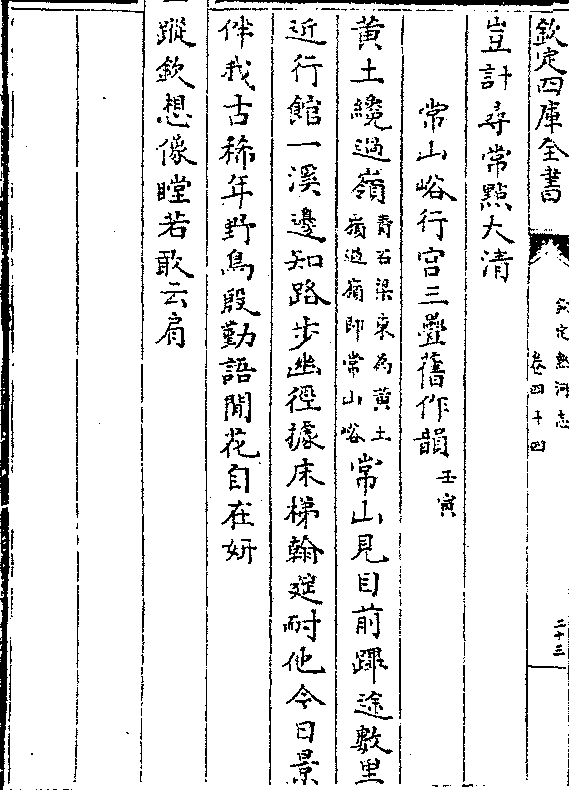 欽定四庫全書
欽定熱河志
卷四十四
二十三
豈計尋常點大清
常山峪行宫三疊舊作韻壬寅
黄土纔過嶺青石梁東為黄土
嶺過嶺即常山峪
常山見目前蹕途數里
近行館一溪邊知路步幽徑據床梯翰筵耐他今日景
伴我古稀年野鳥殷勤語閒花自在妍
蹤欽想像瞠若敢云肩